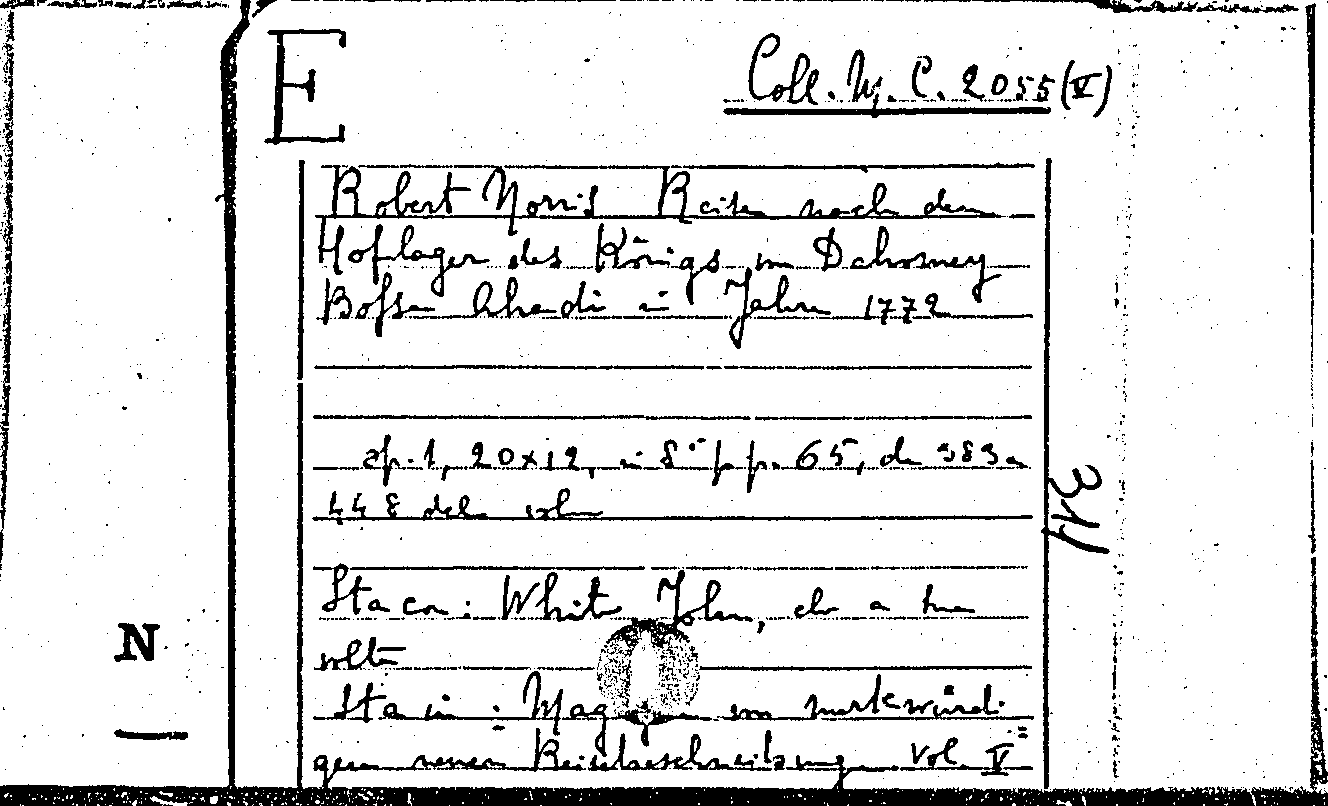 E
Coll. M. C. 2055 (V)
Robert Norris Reisen nach dem
Hoflager des Königs von Dahomey
Bossa Ahadi in Jahre 1772
cp. 1, 20x12, in 8° pp. 65, da 383 a
448 del volume
Sta con: White John, che a tua
volta
N
Sta in: Mag von merkwürdi
gen neuen Reisebeschreibungen vol. V